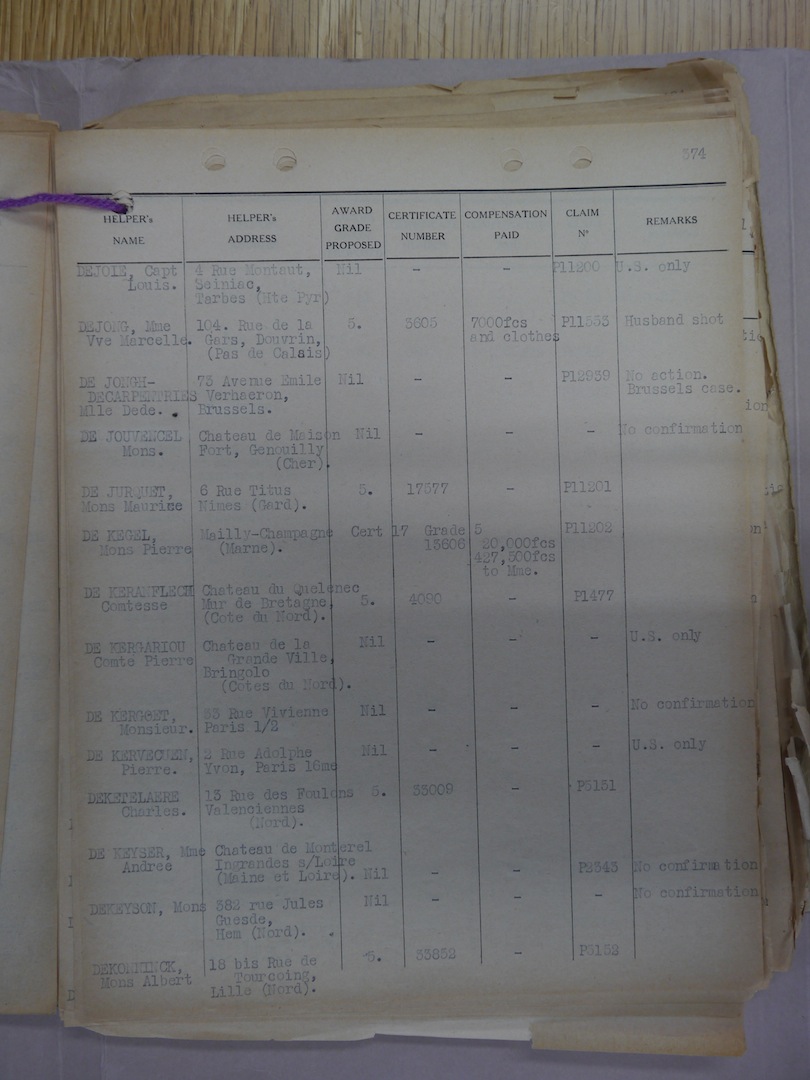 374
HELPER's NAME HELPER's ADDRESS AWARD GRADE PROPOSED CERTIFICATE NUMBER COMPENSATION PAID CLAIM Nº REMARKS
DEJOIE, Capt 4 Rue Montaut, Nil - - P11200 U.S. only
Louis. Seiniac,
Tarbes (Hte Pyr)
DEJONG, Mme 104. Rue de la 5. 3605 7000fcs P11533 Husband shot
Vve Marcelle. Gars, Douvrin, and clothes
(Pas de Calais)
DE JONGH- 73 Avenue Emile Nil - - P12939 No action.
DECARPENTRIES Verhaeron, Brussels case.
Mlle Dede. Brussels.
DE JOUVENCEL Chateau de Maison Nil - - - No confirmation
Mons. Fort, Genouilly
(Cher).
DE JURQUET, 6 Rue Titus 5. 17577 - P11201
Mons Maurice Nimes (Gard).
DE KEGEL, Mailly-Champagne Cert 17 Grade 5 P11202
Mons Pierre (Marne). 15606 20,000fcs
427,500fcs
to Mme.
DE KERANFLECH Chateau du Quelenec
Comtesse Mur de Bretagne, 5. 4090 - P1477
(Cote du Nord).
DE KERGARIOU Chateau de la Nil - - - U.S. only
Comte Pierre Grande Ville,
Bringolo
(Cotes du Nord).
DE KERGOET, 33 Rue Vivienne Nil - - - No confirmation
Monsieur. Paris 1/2
DE KERVEGUEN, 2 Rue Adolphe Nil - - - U.S. only
Pierre. Yvon, Paris 16me
DEKETELAERE 13 Rue des Foulons 5. 33009 - P5151
Charles. Valenciennes
(Nord).
DE KEYSER, Mme Chateau de Monterel
Andree Ingrandes s/Loire
(Maine et Loire). Nil - - P2343 No confirmation
DEKEYSON, Mons 382 rue Jules Nil - - - No confirmation
Guesde,
Hem (Nord).
DEKONINCK, 18 bis Rue de 5. 33852 - P5152
Mons Albert Tourcoing,
Lille (Nord).